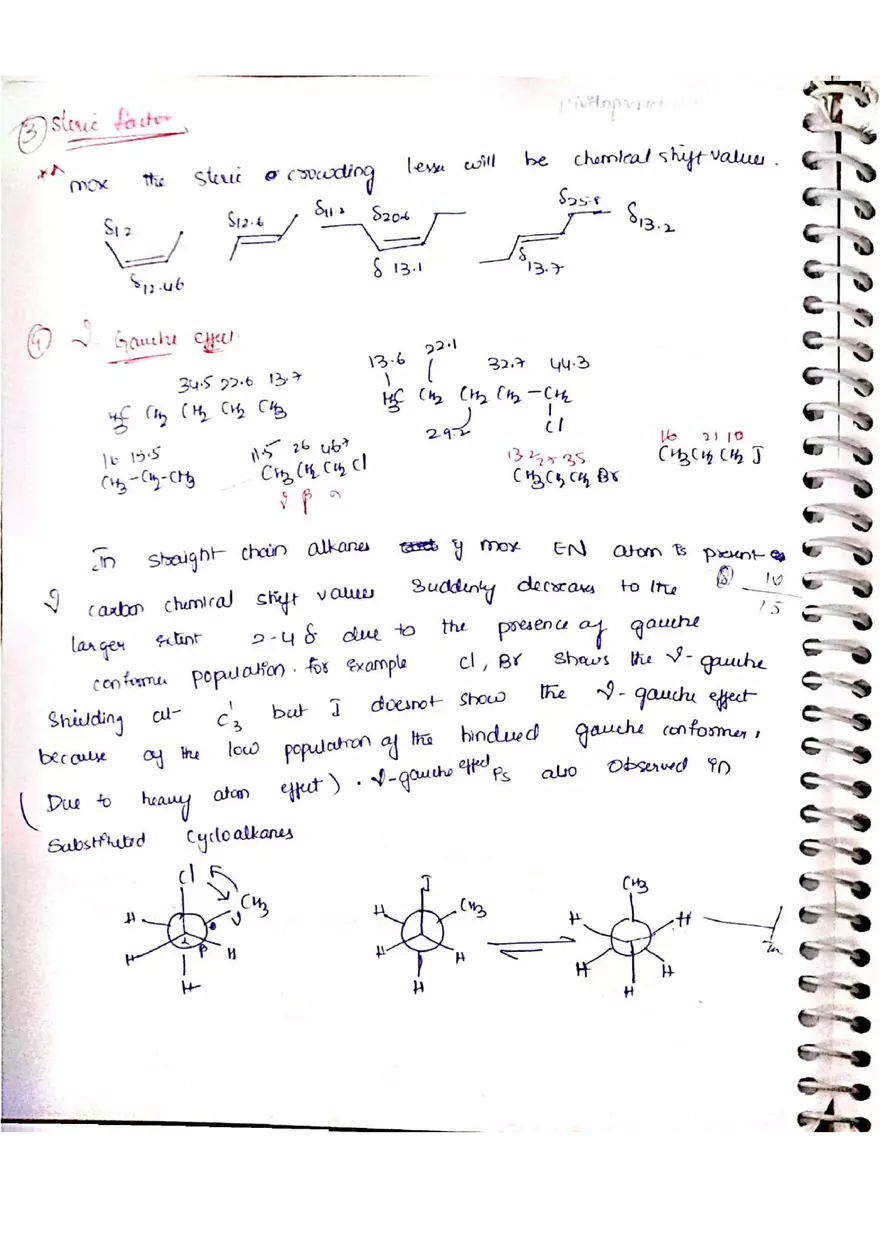 ③ Steric factor
** more the steric crowding lesser will be chemical shift values.
δ12 δ12.6 δ11.2 δ20.6 δ25.8 δ13.2
δ12.46 δ 13.1 δ 13.7
④ γ- Gauche effect.
34.5 22.6 13.7 13.6 22.1 32.7 44.3
H3C CH2 CH2 CH2 CH3 H3C CH2 CH2 CH2 - CH2
29.2 Cl
16 15.5 11.5 26 46.7 16 21 10
CH3-CH2-CH3 CH3 CH2 CH2 Cl CH3 CH2 CH2 Br CH3 CH2 CH2 I
γ β α
In straight chain alkanes if more EN atom is present
γ carbon chemical shift values suddenly decreases to the
larger extent 2-4 δ due to the presence of gauche
conformer population. for example Cl, Br shows the γ-gauche
Shielding at C3 but I doesnot show the γ-gauche effect
because of the low population of the hindered gauche conformer,
(Due to heavy atom effect). γ-gauche effect is also observed in
Substituted Cycloalkanes
Cl CH3 H H H H γ α β
I CH3 H H H H
CH3 H H H H H